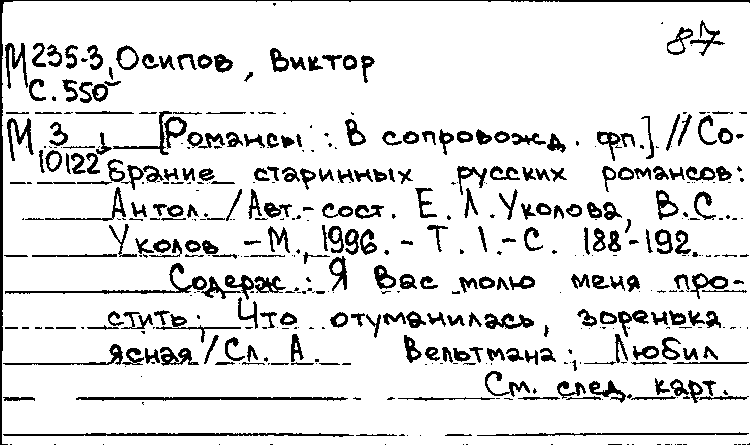 87
М 235-3, Осипов, Виктор
С. 550
М 3 [Романсы : В сопровожд. фп.] // Со-
10122 брание старинных русских романсов:
Антол. / Авт.-сост. Е. Л. Уколова, В. С.
Уколов. - М., 1996. - Т. 1. - С. 188-192.
Содерж.: Я Вас молю меня про-
стить; Что отуманилась, зоренька
ясная / Сл. А. Вельтмана; Любил
См. след. карт.